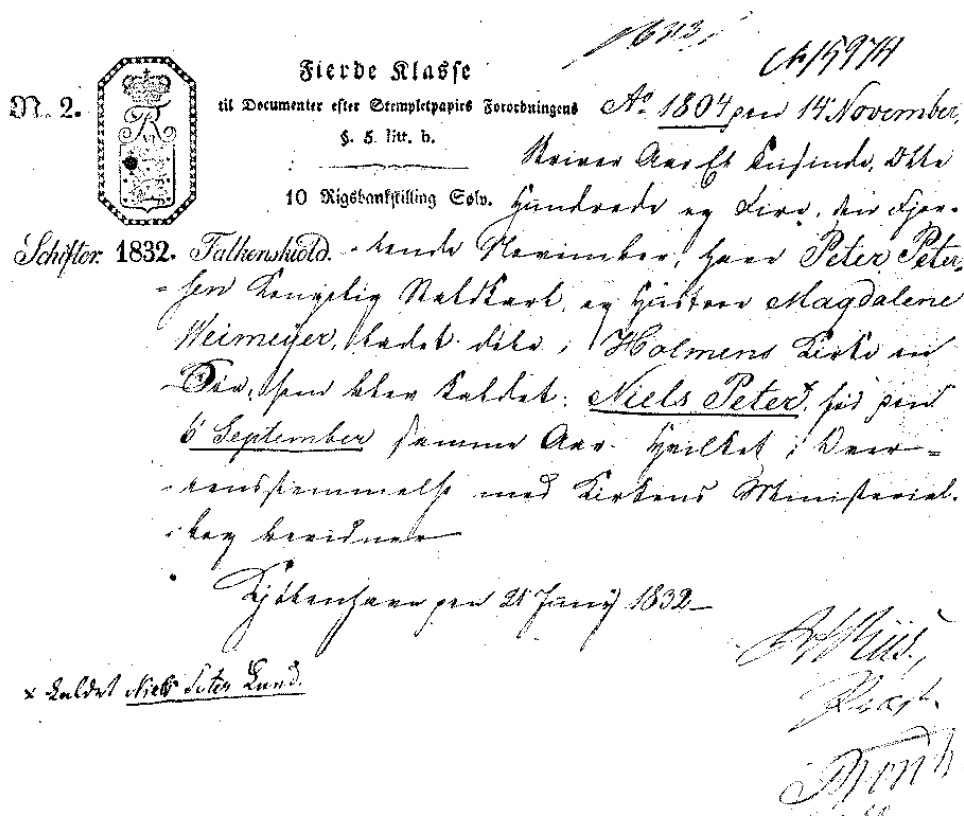 N. 2.
Fierde Klasse
til Documenter efter Stempletpapirs Forordningens
§. 5. litt. b.
10 Rigsbankskilling Sølv.
Schiftor. 1832. Falkenskiold.
Ao 1804 den 14 November,
skriver Aar Et Tusinde, Otte
Hundrede og Fire, den Fjor-
tende November, have Peter Peter-
sen Kongelig Staldkarl, og Hustrue Magdalene
Weimeyer, ladet døbe i Holmens Kirke en
Søn, som blev kaldet: Niels Peter x, fød den
6 September samme Aar. Hvilket i Over-
eensstemmelse med Kirkens Ministerial-
bog bevidner
Kjöbenhavn den 21 Junij 1832
Præst.
x kaldet Niels Peter Lund.